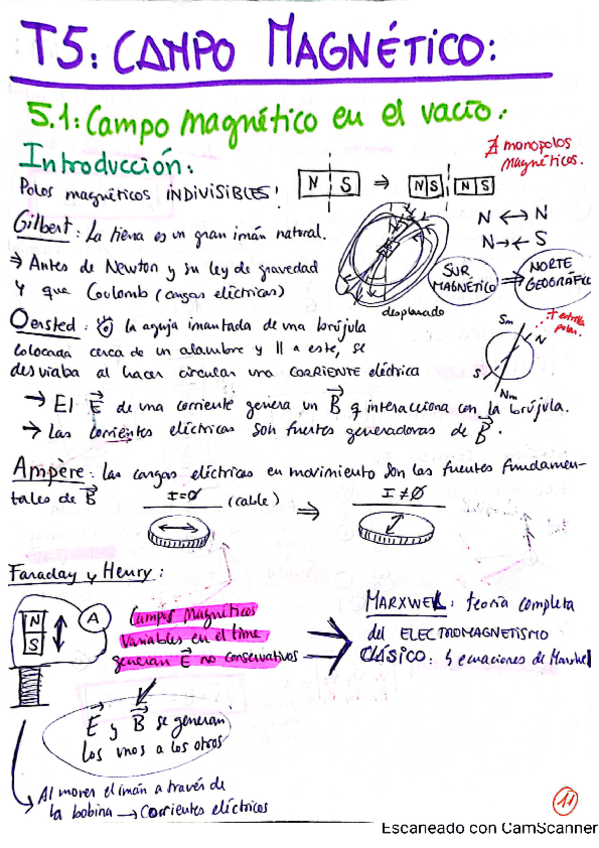 T5: CAMPO MAGNÉTICO:
5.1: Campo magnético en el vacío.
Introducción:
∄ monopolos
magnéticos.
Polos magnéticos INDIVISIBLES!
N S ⇒ N S N S
Gilbert: La tierra es un gran imán natural.
N ↔ N
N → ← S
⇒ Antes de Newton y su ley de gravedad
y que Coulomb (cargas eléctricas)
SUR
MAGNÉTICO ⇒ NORTE
GEOGRÁFICO
desplazado
Oersted: la aguja imantada de una brújula
colocada cerca de un alambre y || a este, se
desviaba al hacer circular una CORRIENTE eléctrica
Sm
N
S
Nm
+ estrella
polar.
→ El E de una corriente genera un B q interacciona con la brújula.
→ Las corrientes eléctricas son fuertes generadoras de B.
Ampère: las cargas eléctricas en movimiento son las fuentes fundamen-
tales de B
I=0 (cable) ⇒ I≠0
Faraday y Henry:
N
S
A
Campos Magnéticos
variables en el time
generan E no conservativos
MARXWEL: teoría completa
del ELECTROMAGNETISMO
CLÁSICO: 4 ecuaciones de Maxwel
E y B se generan
los unos a los otros
Al mover el imán a través de
la bobina → Corrientes eléctricos
11
Escaneado con CamScanner